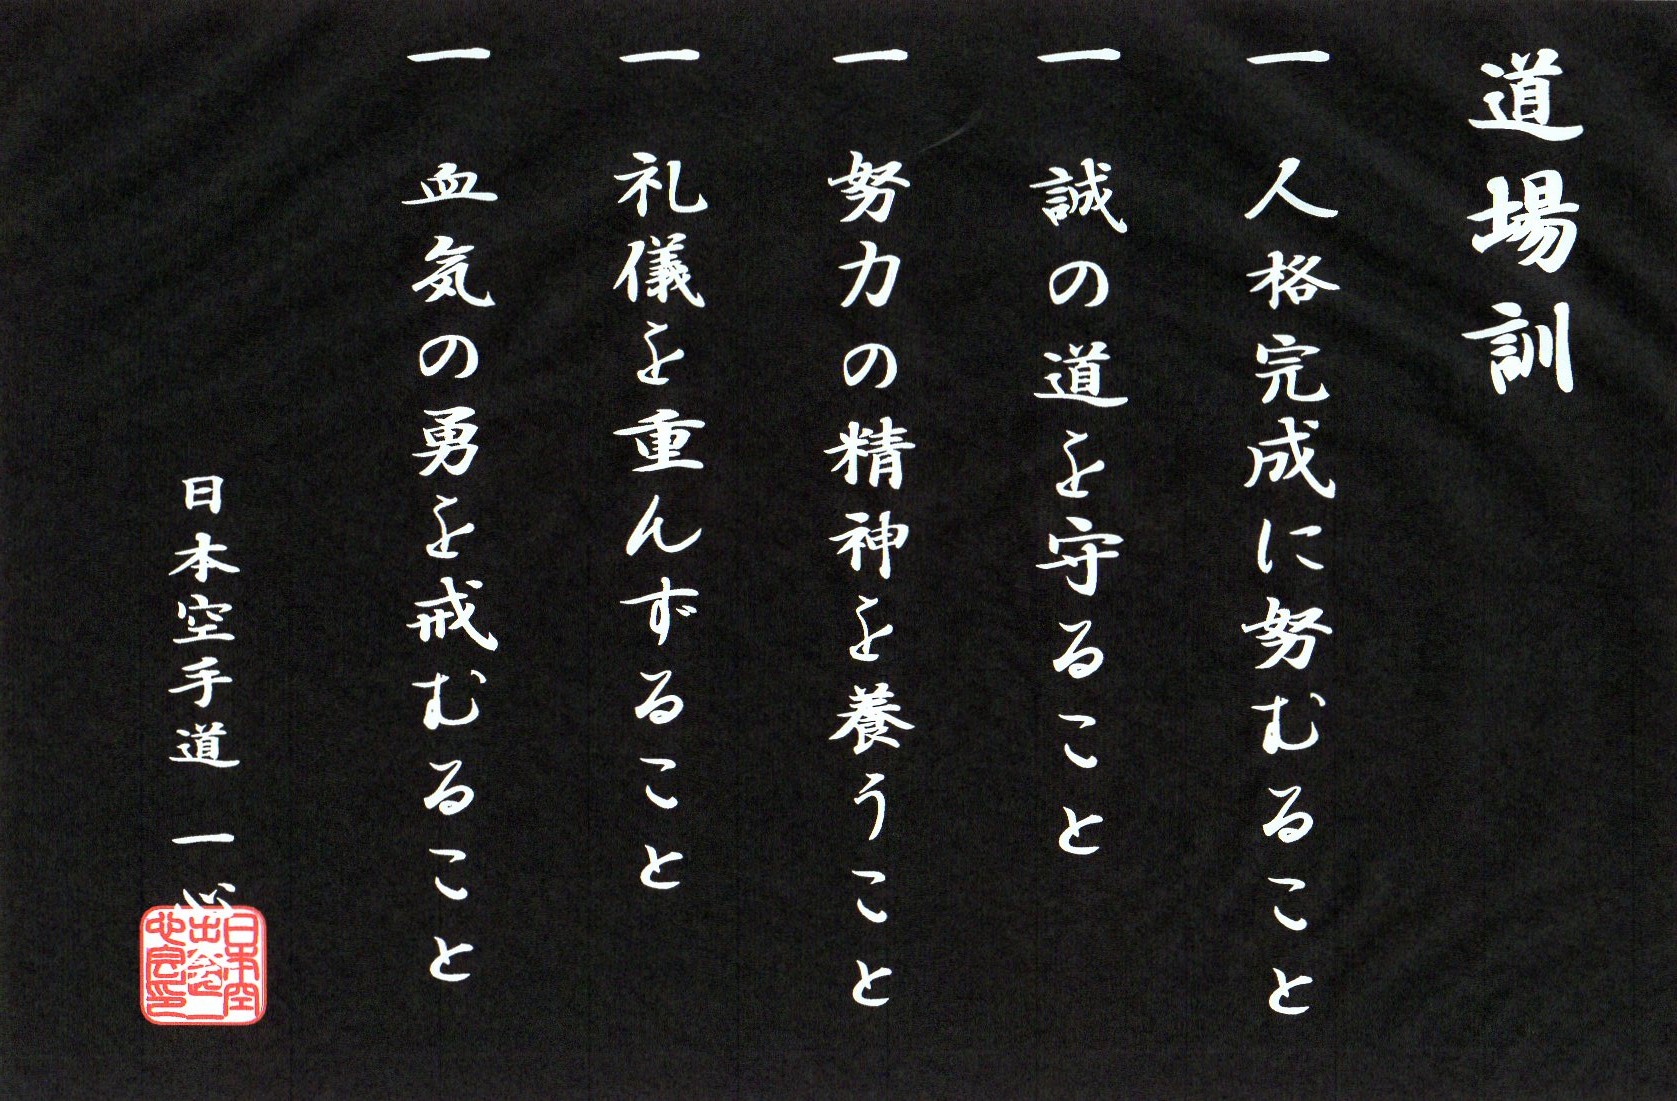 道場訓
一 人格完成に努むること
一 誠の道を守ること
一 努力の精神を養うこと
一 礼儀を重んずること
一 血気の勇を戒むること
日本空手道 一心